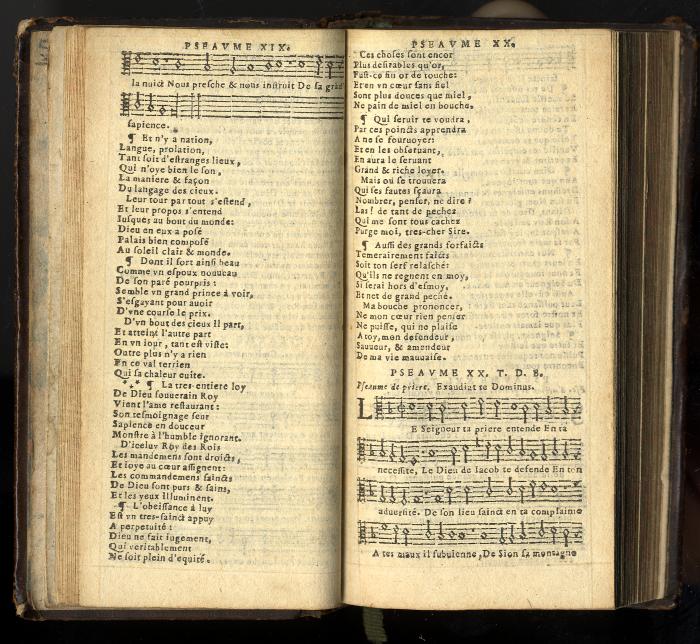 PSEAVME XIX.
la nuict Nous presche & nous instruit De sa grād
sapience.
¶ Et n'y a nation,
Langue, prolation,
Tant soit d'estranges lieux,
Qui n'oye bien le son,
La maniere & façon
Du langage des cieux.
Leur tour par tout s'estend,
Et leur propos s'entend
Iusques au bout du monde:
Dieu en eux a posé
Palais bien composé
Au soleil clair & monde.
¶ Dont il sort ainsi beau
Comme vn espoux nouueau
De son paré pourpris:
Semble vn grand prince à voir,
S'esgayant pour auoir
D'vne course le prix.
D'vn bout des cieux il part,
Et atteint l'autre part
En vn iour, tant est viste:
Outre plus n'y a rien
En ce val terrien
Qui sa chaleur euite.
*⁎* ¶ La tres-entiere loy
De Dieu souuerain Roy
Vient l'ame restaurant:
Son tesmoignage seur
Sapience en douceur
Monstre à l'humble ignorant.
D'iceluy Roy des Rois
Les mandemens sont droicts,
Et ioye au cœur assignent:
Les commandemens saincts
De Dieu sont purs & sains,
Et les yeux illuminent.
¶ L'obeissance à luy
Est vn tres-sainct appuy
A perpetuité:
Dieu ne fait iugement,
Qui veritablement
Ne soit plein d'equité.
PSEAVME XX.
Ces choses sont encor
Plus desirables qu'or,
Fust-ce fin or de touche:
Et en vn cœur sans fiel
Sont plus douces que miel,
Ne pain de miel en bouche.
¶ Qui seruir te voudra,
Par ces poincts apprendra
A ne se fouruoyer:
Et en les obseruant,
En aura le seruant
Grand & riche loyer.
Mais où se trouuera
Qui ses fautes sçaura
Nombrer, penser, ne dire?
Las! de tant de pechez
Qui me sont tous cachez
Purge moi, tres-cher Sire.
¶ Aussi des grands forfaicts
Temerairement faicts
Soit ton serf relasché:
Qu'ils ne regnent en moy,
Si serai hors d'esmoy,
Et net de grand peché.
Ma bouche prononcer,
Ne mon cœur rien penser
Ne puisse, qui ne plaise
A toy, mon defendeur,
Sauueur, & amendeur
De ma vie mauuaise.
PSEAVME XX. T. D. B.
Pseaume de priere. Exaudiat te Dominus.
LE Seigneur ta priere entende En ta
necessité, Le Dieu de Iacob te defende En ton
aduersité. De son lieu sainct en ta complainte
A tes maux il subuienne, De Sion sa montagne